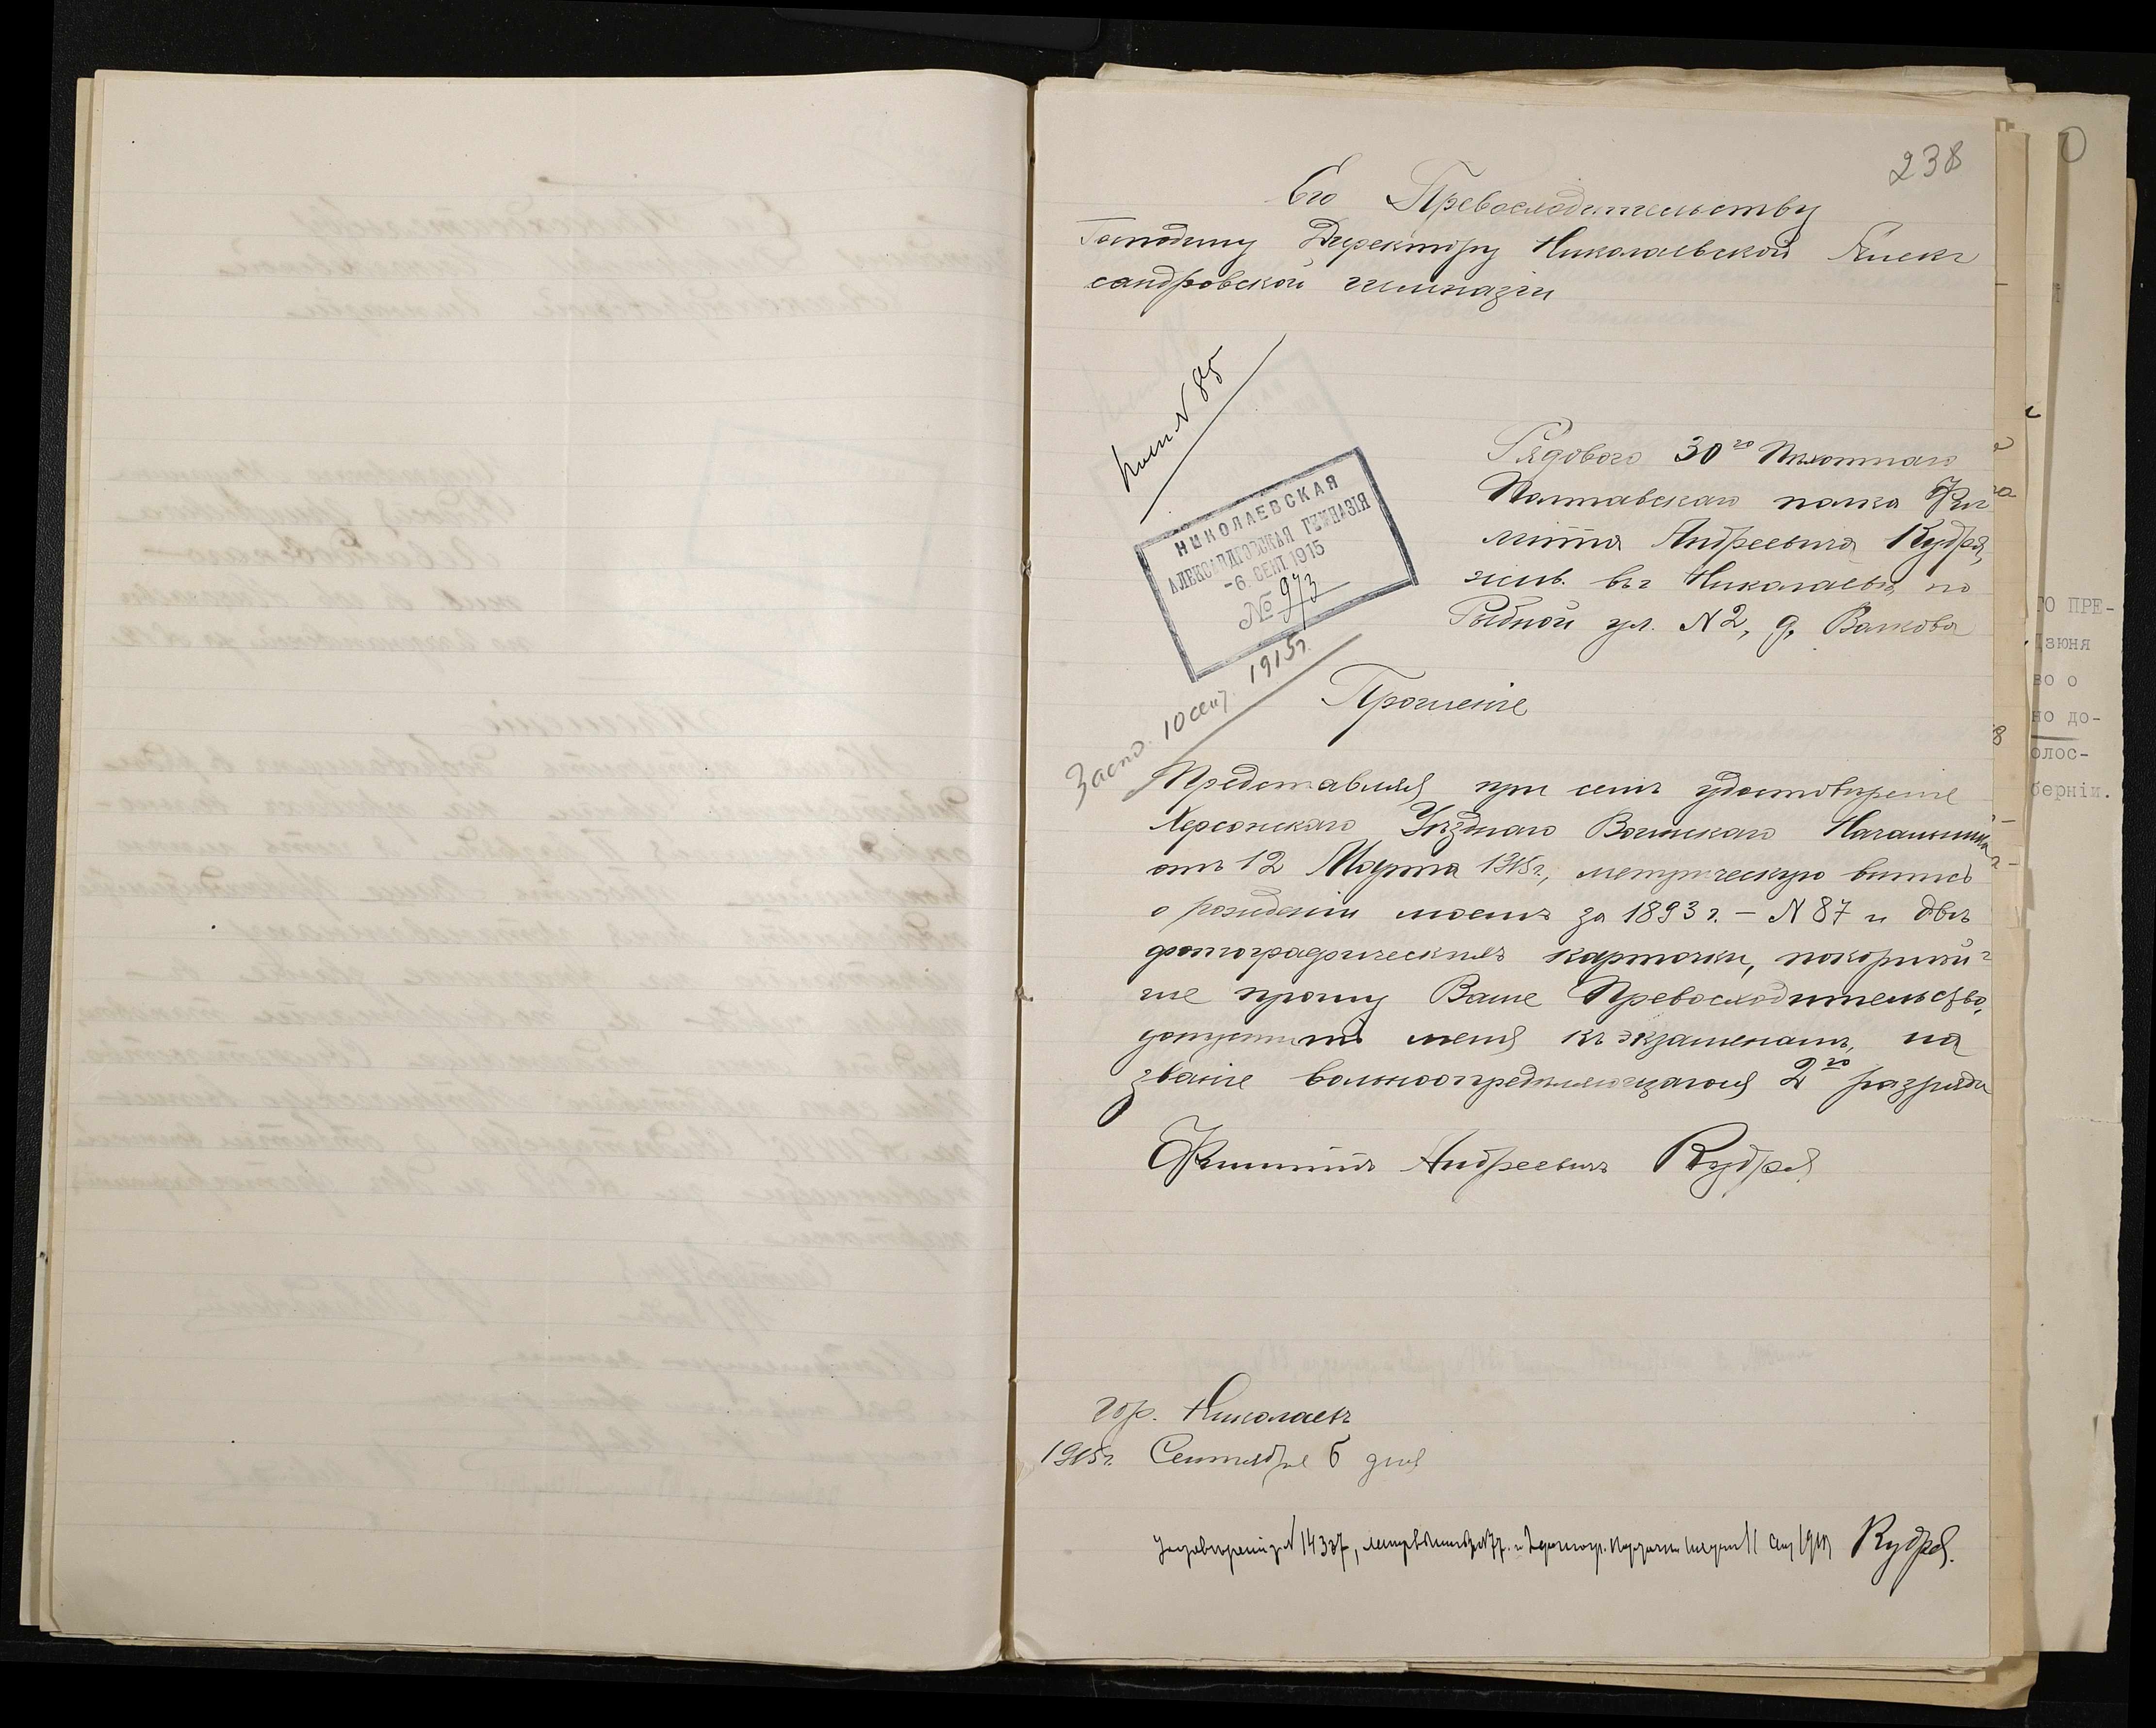 238
Его Превосходительству
Господину Директору Николаевской Алек
сандровской гимназіи
N 85
Рядового 30го Пѣхотнаго
Полтавскаго полка Фи
липпа Андреевича Кудря,
жив. въ г. Николаевѣ, по
Рыбной ул. N 2, д. Волкова
НИКОЛАЕВСКАЯ
АЛЕКСАНДРОВСКАЯ ГИМНАЗІЯ
-6. СЕНТ 1915
№ 973
10 сент. 1915г.
Прошеніе
Представляя при семъ удостовѣреніе
Херсонскаго Уѣзднаго Воинскаго Начальника
отъ 12 Марта 1915г., метрическую выпись
о рожденіи моемъ за 1893 г. – N 87 и двѣ
фотографическихъ карточки, покорнѣй-
ше прошу Ваше Превосходительство,
допустить меня къ экзаменамъ, на
званіе вольноопредѣляющагося 2го разряда
Филиппъ Андреевичъ Кудря
гор. Николаевъ
1915г. Сентября 6 дня
Кудря.
ГО ПРЕ-
Дзюня
во о
но до-
олос-
берніи.